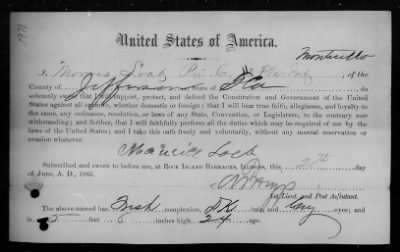 1977
United States of America.
Monticello
I, Morris Loeb Pri C, of the
County of Jefferson State of Fla do
solemnly swear that I will support, protect, and defend the Constitution and Government of the United
States against all enemies, whether domestic or foreign; that I will bear true faith, allegiance, and loyalty to
the same, any ordinance, resolution, or laws of any State, Convention, or Legislature, to the contrary not-
withstanding; and further, that I will faithfully perform all the duties which may be required of me by the
laws of the United States; and I take this oath freely and voluntarily, without any mental reservation or
evasion whatever.
Maurice Loeb
Subscribed and sworn to before me, at ROCK ISLAND BARRACKS, ILLINOIS, this day
of June, A. D., 1865.
1st Lieut. and Post Adjutant.
The above named has Fresh complexion, DK hair, and Gray eyes; and
is 5 feet 6 inches high, age.